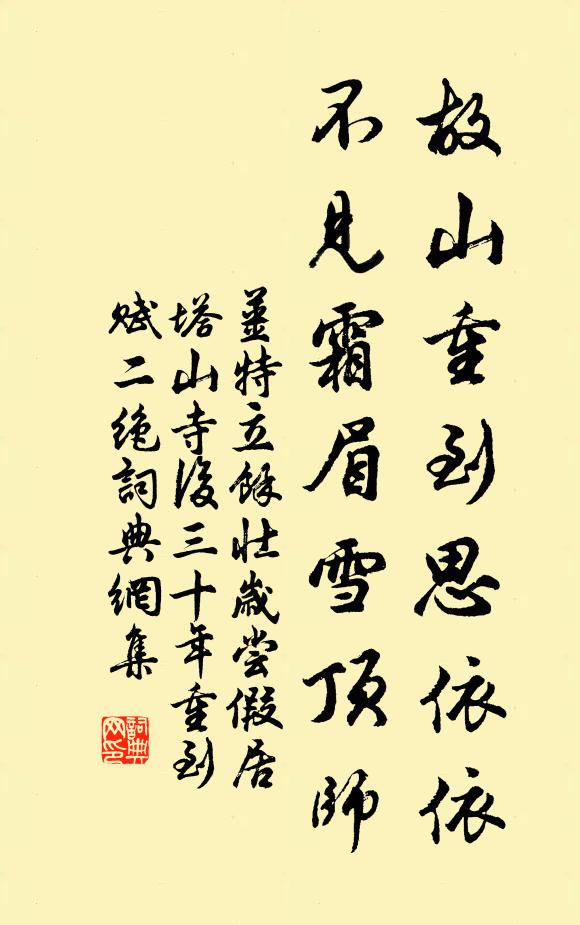 故山重到思依依
不見霜眉雪頂師
薑特立餘壯歲嘗假居
塔山寺後三十年重到
賦二絶詞典網集
詞典網印